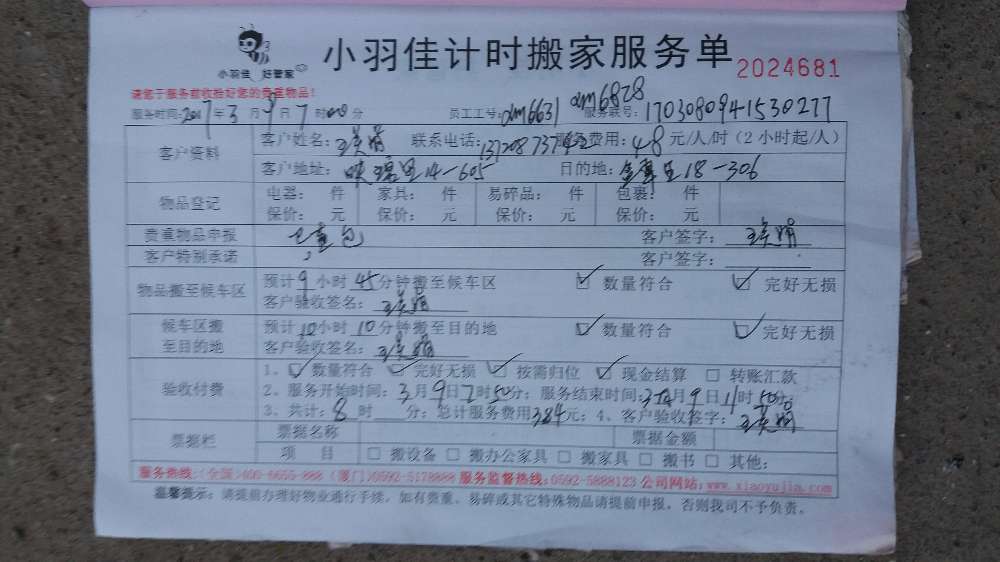 小羽佳计时搬家服务单
小羽佳 好管家
2024681
请您于服务前收拾好您的贵重物品!
服务时间:2017年3月9日7时00分 员工工号:xlm6631 xlm6828 服务联号:1703080941530277
客户资料 客户姓名: 联系电话: 服务费用:48元/人/时(2小时起/人)
客户地址: 里14-605 目的地: 里18-306
物品登记 电器: 件 家具: 件 易碎品: 件 包裹: 件
保价: 元 保价: 元 保价: 元 保价: 元
贵重物品申报 包 客户签字:
客户特别承诺 客户签字:
物品搬至候车区 预计9小时45分钟搬至候车区 ☑ 数量符合 ☑ 完好无损
客户验收签名:
候车区搬至目的地 预计10小时10分钟搬至目的地 ☑ 数量符合 ☑ 完好无损
客户验收签名:
验收付费 1、☑ 数量符合 ☑ 完好无损 ☑ 按需归位 ☑ 现金结算 □ 转账汇款
2、服务开始时间:3月9日7时50分;服务结束时间:3月9日11时50分;
3、共计:8时 分;总计服务费用384元;4、客户验收签字:
票据栏 票据名称 票据金额
项 目 □ 搬设备 □ 搬办公家具 □ 搬家具 □ 搬书 □ 其他:
服务热线:(全国)400-6655-888 (厦门)0592-5178888 服务监督热线:0592-5888123 公司网站:www.xiaoyujia.com
温馨提示:请提前办理好物业通行手续,如有贵重、易碎或其它特殊物品请提前申报,否则我司不予负责。